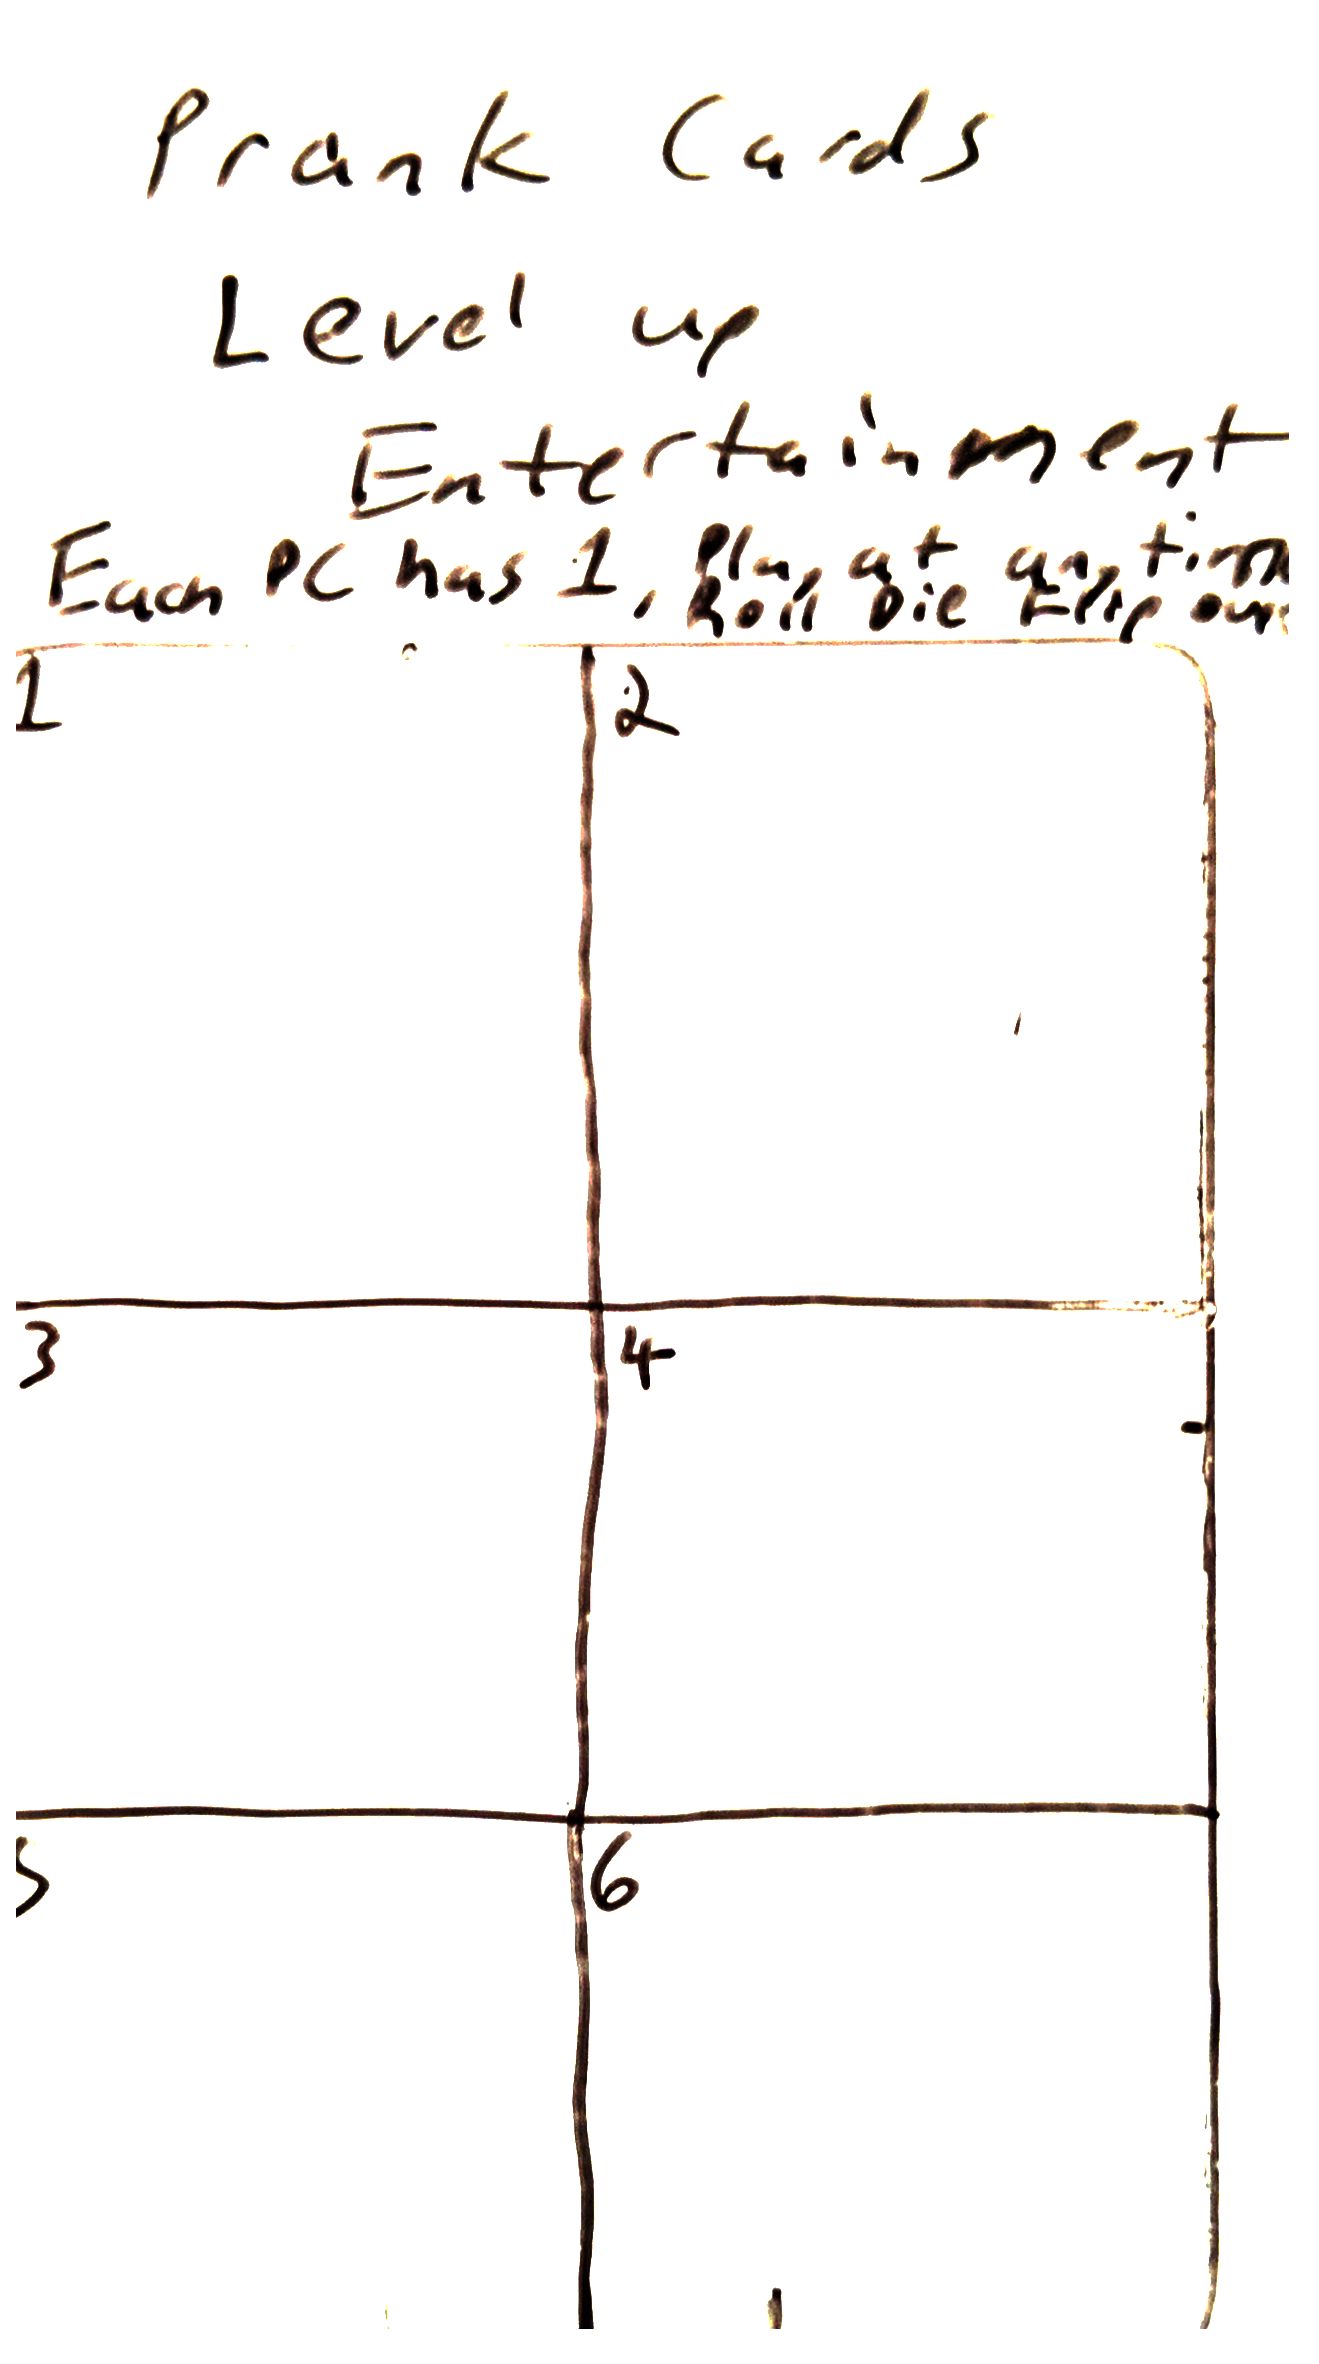 Prank Cards
Level up
Entertainment
Each PC has 1, Play at any time
Roll Die Flip over
1
2
3
4
5
6